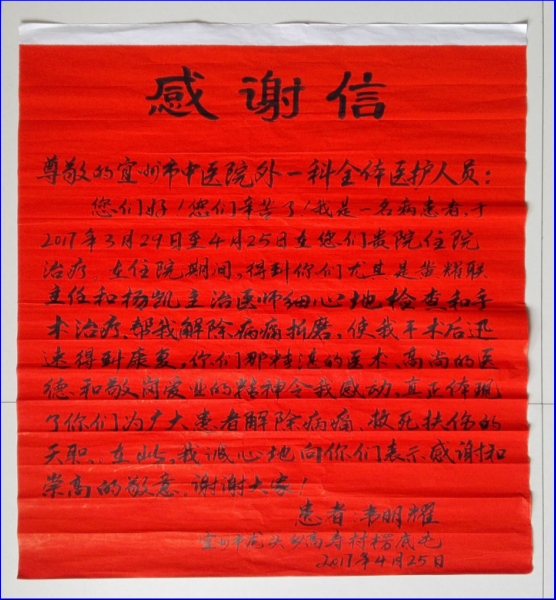 感谢信
尊敬的宜州市中医院外一科全体医护人员：
您们好！您们辛苦了！我是一名病患者，于
2017年3月29日至4月25日在您们贵院住院
治疗。在住院期间，得到你们尤其是黄耀联
主任和杨凯主治医师细心地检查和手
术治疗，帮我解除病痛折磨，使我手术后迅
速得到康复，你们那精湛的医术、高尚的医
德和敬岗爱业的精神令我感动，真正体现
了你们为广大患者解除病痛、救死扶伤的
天职、在此，我诚心地向你们表示感谢和
崇高的敬意，谢谢大家！
患者：韦明耀
宜州市龙头乡高寿村楞底屯
2017年4月25日